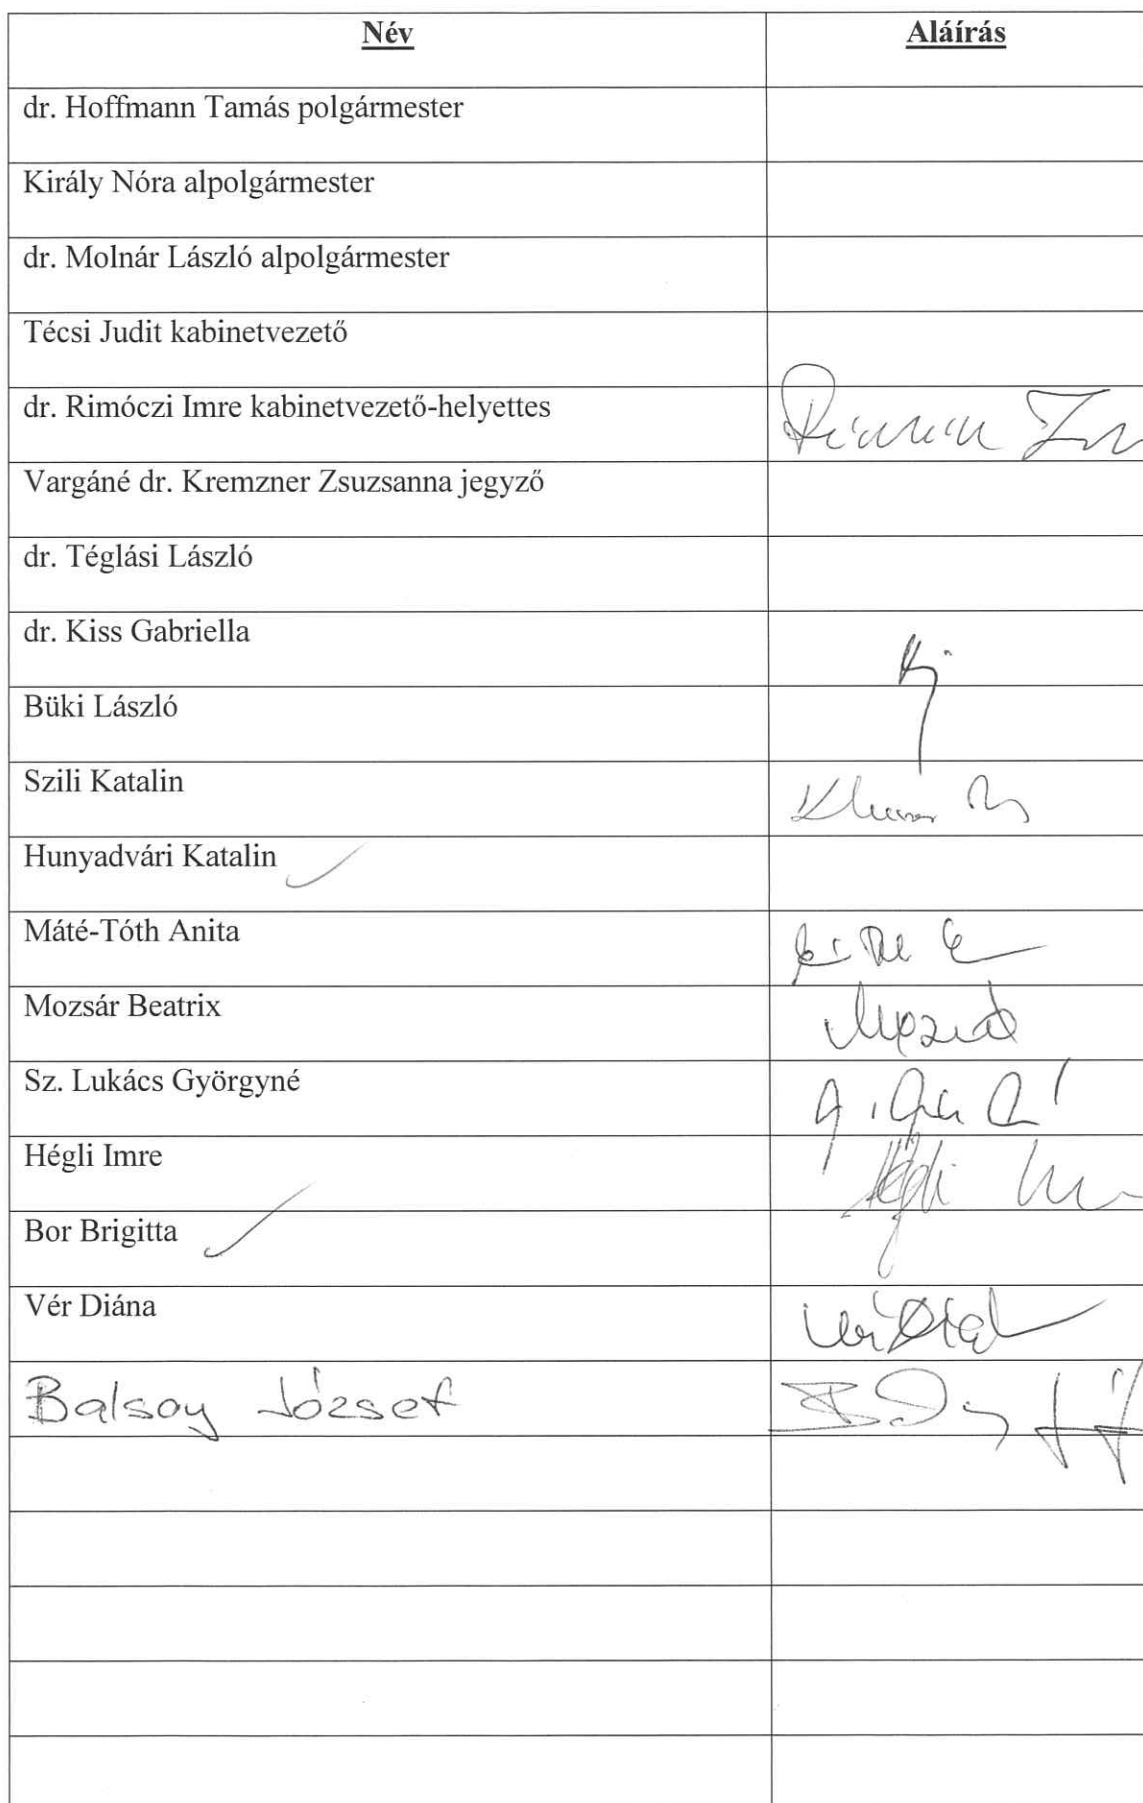 Név Aláírás
dr. Hoffmann Tamás polgármester
Király Nóra alpolgármester
dr. Molnár László alpolgármester
Técsi Judit kabinetvezető
dr. Rimóczi Imre kabinetvezető-helyettes
Vargáné dr. Kremzner Zsuzsanna jegyző
dr. Téglási László
dr. Kiss Gabriella
Büki László
Szili Katalin
Hunyadvári Katalin
Máté-Tóth Anita
Mozsár Beatrix
Sz. Lukács Györgyné
Hégli Imre
Bor Brigitta
Vér Diána
Balsay József